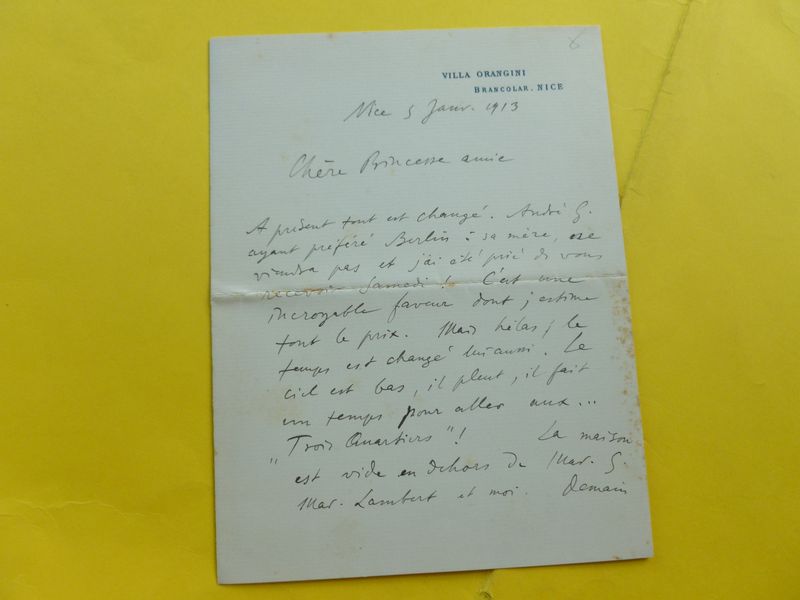 VILLA ORANGINI
BRANCOLAR. NICE
Nice 5 Janv. 1913
Chère Princesse amie
A présent tout est changé. André G.
ayant préféré Berlin à sa mère, ne
viendra pas et j'ai été prié de vous
recevoir Samedi ! C'est une
incroyable faveur dont j'estime
tout le prix. Mais hélas, le
temps est changé lui aussi. Le
ciel est bas, il pleut, il fait
un temps pour aller aux...
"Trois Quartiers" ! La maison
est vide en dehors de Mad. G.
Mad. Lambert et moi. Demain